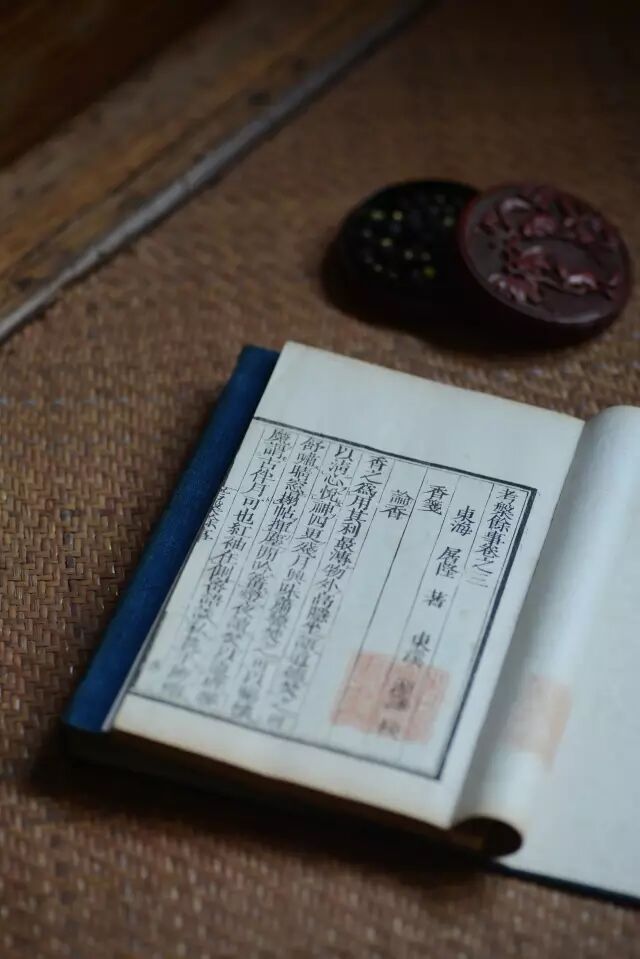 考槃餘事卷之三
東海 屠隆 著 東溪 校
香箋
論香
香之為用其利最溥物外高隱坐語道德焚之可
以清心悅神四更殘月興味蕭騷焚之可以暢懷
舒嘯晴窗搨帖揮麈閒吟篝燈夜讀焚以遠辟睡
魔謂古伴月可也紅袖在側密語談私
考槃餘事